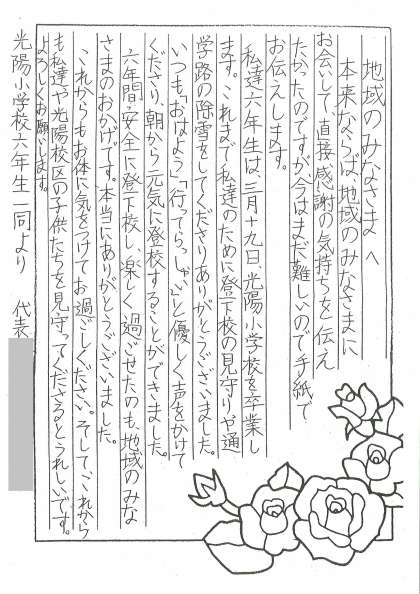 地域のみなさまへ
本来ならば、地域のみなさまに
お会いして、直接感謝の気持ちを伝え
たかったのですが今はまだ難しいので手紙で
お伝えします。
私達六年生は、三月十九日、光陽小学校を卒業し
ます。これまで私達のために登下校の見守りや通
学路の除雪をしてくださりありがとうございました。
いつも「おはよう」「行ってらっしゃい」と優しく声をかけて
くださり、朝から元気に登校することができました。
六年間・安全に登下校し、楽しく過ごせたのも、地域のみな
さまのおかげです。本当にありがとうございました。
これからもお体に気をつけてお過ごしください。そして、これから
も私達や光陽校区の子供たちを見守ってくださるとうれしいです。
よろしくお願いします。
光陽小学校六年生一同より 代表